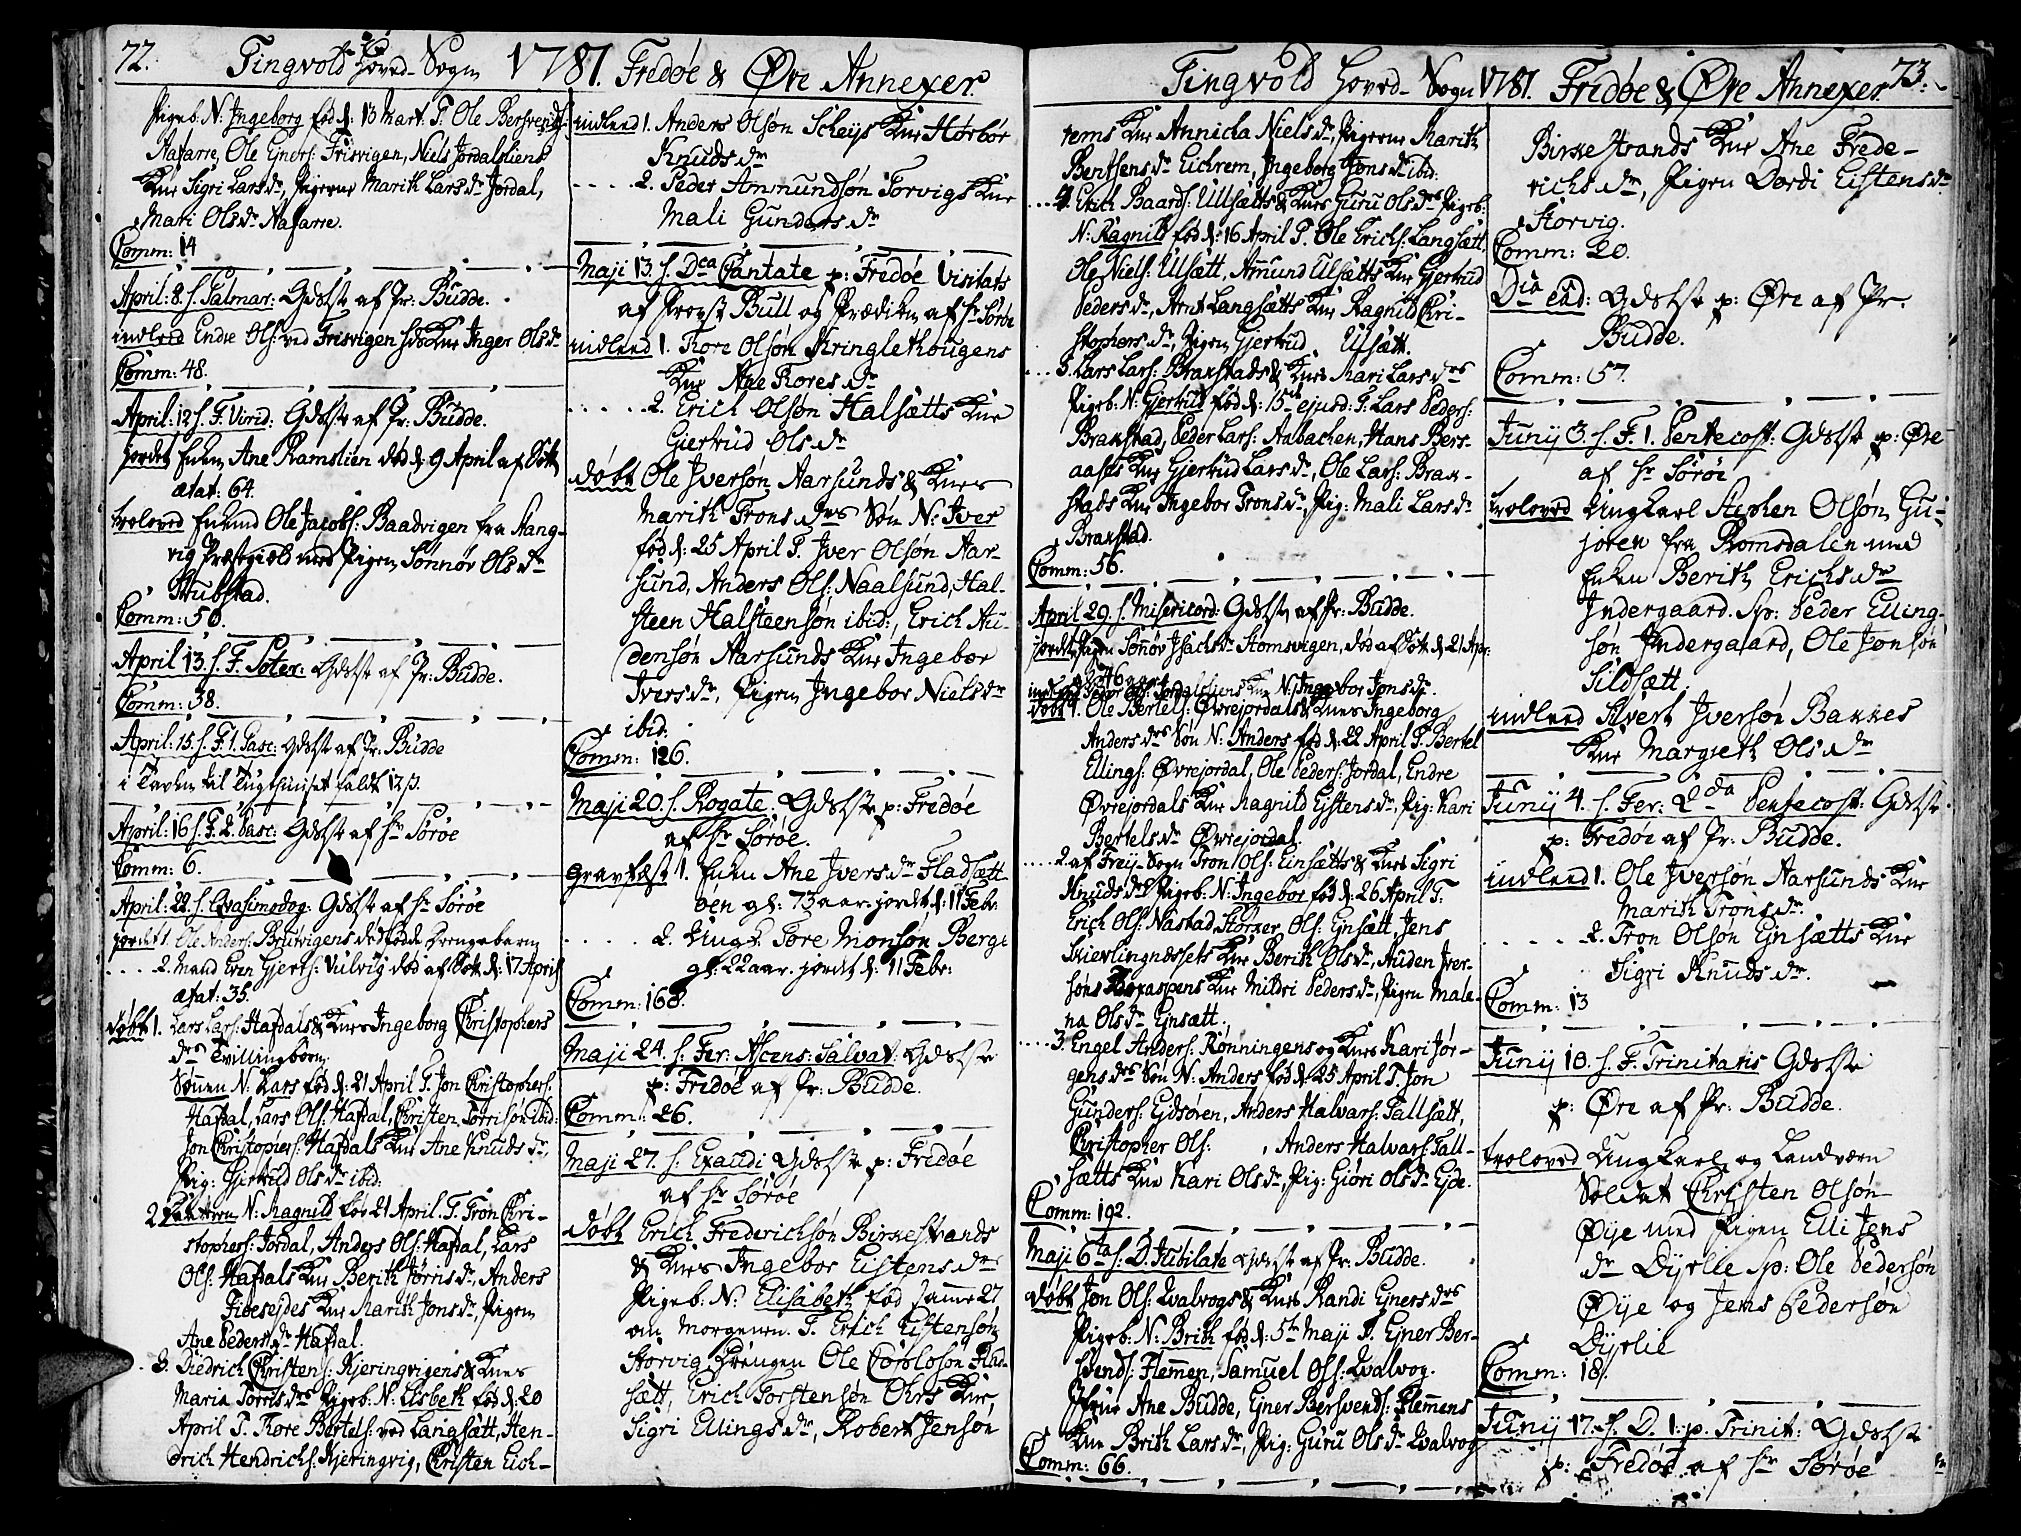 72. Tingvold Hoved-Sogn 1781. Fredøe & Øre Annexer.
Pigeb: N: Ingeborg fød d: 13 Mart. T. Ole Bersvends:
Aafarre, Ole Ejners: Frisvigen, Niels Jordalsliens
Kne Sigri Larsdr, Pigerne Marith Larsdr Jordal,
Mari Olsdr Aafarre.
Comm: 14
April: 8. f. Palmar: Gdstste af Pr: Budde.
indleed Endre Ols: ved Frisvigen hds Kne Inger Olsdr
Comm: 48.
April: 12 f. F. Virid: Gdstste af Pr: Budde.
jordet Enken Ane Ramslien død d: 9 April af Sott
ætat: 64.
troloved Enkemd Ole Jacobs: Baadvigen fra Stang-
vig Præstegield med Pigen Sønnøv Olsdr
Stubstad.
Comm: 50.
April 13. f. F. Poter: Gdstste af Pr: Budde.
Comm: 38.
April: 15. f. F. 1. Pasc: Gdstste af Pr: Budde
i Tavlen til Tugthuuset faldt 12 s.
April: 16 f. F. 2. Pasc: Gdstste af Hr Sørøe
Comm: 6.
April: 22. f. Qvasimodog: Gdstste af Hr Sørøe
jordet 1. Ole Anders: Bruvigens dødfødde drengebarn
.... 2. Mand Even Gjerts: Vulvig død af Sott d: 17 April
ætat: 35.
døbt 1. Lars Lars: Hafdals & Knes Ingeborg Christophers
drs Tvillingbørn
Sønnen N: Lars fød d: 21 April T. Jon Christophers:
Hafdal, Lars Ols: Hafdal, Christen Torrisøn ibid:
Jon Christophers: Hafdals Kne Ane Knudsdr,
Pig: Gjertrud Olsdr ibid:
2. Datteren N: Ragnild fød 21 April. T. Tron Chri-
stophers: Jordal, Anders Ols: Hafdal, Lars
Ols: Hafdals Kne Berith Torrisdr, Anders
Fiveseides Kne Marith Jonsdr, Pigen
Ane Pedersdr Hafdal.
3. Diedrich Christens: Kjeringvigens & Knes
Maria Torrisdrs Pigeb: N: Lisbeth fød d: 20
April T. Tore Bertels: ved Langsætt, Hen-
drich Hendrichs: Kjeringvig, Christen Eich-
indleed 1. Anders Olsøn Scheys Kne Hørbor
Knudsdr
.... 2. Peder Ammundsøn Torvigs Kne
Mali Gundersdr
Maji 13. f. Dca Cantate p: Fredøe Visitats
af Provst Bull og Prædiken af Hr Sørøe
indleed 1. Tore Olsøn Kringlethougens
Kne Ane Toresdr
..... 2. Erich Olsøn Halsætts Kne
Giertrud Olsdr
døbt Ole Iversøn Aarsunds & Knes
Marith Tronsdrs Søn N: Iver
fød d: 25 April T. Iver Olsøn Aar-
sund, Anders Ols: Naalsund, Hal-
steen Halsteensøn ibid:, Erich Au-
densøn Aarsunds Kne Ingebor
Iversdr, Pigen Ingebor Nielsdr
ibid:
Comm: 126.
Maji 20. f. Rogate. Gdstste p: Fredøe
af Hr Sørøe.
gravfæst 1. Enken Ane Iversdr Fladsætt-
øen gl: 73 aar. jordet d: 11 Febr:
..... 2. Ungk. Tore Monsøn Berge
gl: 22 aar. jordet d: 11 Febr:
Comm: 168.
Maji 24. f. Fer: Ascens: Salvat: Gdstste
p: Fredøe af Pr: Budde.
Comm: 26.
Maji 27. f: Exaudi Gdstste p: Fredøe
af Hr Sørøe
døbt Erich Frederichsøn Birkestrands
& Knes Ingebor Eistensdrs
Pigeb: N: Elisabeth fød samme 27
om Morgenen. T. Erich Eistensøn
Storvig, Drengen Ole Carlsøn Flad-
sætt, Erich Torstensøn Ohrs Kne,
Sigri Ellingsdr, Robert Jensøn
Tingvold Hoved-Sogn 1781. Fredøe & Øre Annexer. 73.
rems Kne Annicka Nielsdr, Pigerne Marith
Bentsensdr Eichrem, Ingeborg Jonsdr ibid:
.... 4. Erich Baards: Ullsætts & Knes Guru Olsdrs Pigeb:
N: Ragnild fød d: 16 April T. Ole Erichs: Langsætt,
Ole Niels: Ulsætt, Amund Ulsætts Kne Gjertrud
Pedersdr, Arnt Langsætts Kne Ragnild Chri-
stophersdr, Pigen Gjertrud Ulsætt.
.... 5. Lars Lars: Brakstads & Knes Mari Larsdrs
Pigeb: N: Gjertrud fød d: 15de ejusd: T. Lars Peders:
Brakstad, Peder Lars: Aabachen, Hans Bers-
aases Kne Gjertrud Larsdr, Ole Lars: Brak-
stads Kne Ingebor Tronsdr, Pig: Mali Larsdr
Brakstad.
Comm: 56.
April 29. f. Misericord: Gdstste af Pr: Budde.
jordet Pigen Sønnøv Isachsdr Stomsvigen, død af Sott d: 21 Apr:
gl: 46 aar.
indleed Peder Ols: Jordalsliens Kne N: Ingebor Jonsdr.
døbt 1. Ole Bertels: Øvrejordals & Knes Ingeborg
Andersdrs Søn N: Anders fød d: 22 April T. Bertel
Ellings: Øvrejordal, Ole Peders: Jordal, Endre
Øvrejordals Kne Ragnild Ejstensdr, Pig: Kari
Bertelsdr Øvrejordal.
..... 2. af Freij-Sogn Tron Ols: Einsætts & Knes Sigri
Knudsdrs Pigeb: N: Ingebor fød d: 26 April T.
Erich Ols: Nastad, Størker Ols: Ejnsætt, Jens
Skierlingnessets Kne Berith Olsdr, Auden Iver-
søns Kne Mildri Pedersdr, Pigen Male-
na Olsdr Ejnsætt.
.... 3. Engel Anders: Rønningens og Knes Kari Jør-
gensdrs Søn N: Anders fød d: 25 April T. Jon
Gunders: Ejdsøren, Anders Halvars: Tallsætt,
Christopher Ols: , Anders Halvars: Tall-
sætts Kne Kari Olsdr, Pig: Giøri Olsdr Ejde.
Comm: 192.
Maji 6ta f. D. Jubilate Gdstste af Pr: Budde.
døbt Jon Ols: Qvalvogs & Knes Randi Ejnersdrs
Pigeb: N: Brith fød d: 5te Maji T. Ejner Ber-
svends: Flemmen, Samuel Ols: Qvalvog.
Mfrue Ane Budde, Ejner Bersvends: Flemmens
Kne Brith Larsdr, Pig: Guru Olsdr Qvalvog
Comm: 66.
Birkestrands Kne Ane Frede-
richsdr, Pigen Dordi Eistensdr
Storvig.
Comm: 20.
Dio eod: Gdstste p: Øre af Pr.
Budde.
Comm: 57.
Junij 3. f. F. 1. Pentecost: Gdstste p: Øre
af Hr Sørøe
troloved Ungkarl Stephen Olsøn Gu-
joren fra Romsdalen med
Enken Berith Erichsdr
Indergaard. Sp: Peder Elling-
søn Indergaard, Ole Jonsøn
Sildsætt.
indleed Sivert Iversøn Bakkes
Kne Margreth Olsdr
Junij 4. f. Fer: 2da Pentecost: Gdstste
p: Fredøe af Pr: Budde.
indleed 1. Ole Iversøn Aarsunds Kne
Marith Tronsdr.
.... 2. Tron Olsøn Ejnsætts Kne
Sigri Knudsdr.
Comm: 13
Junij 10. f. F. Trinitatis Gdstste
p: Øre af Pr: Budde.
troloved Ungkarl og Landværn
Soldat Christen Olsøn
Øije med Pigen Elli Jens
dr Dyrlie Sp: Ole Pedersøn
Øije og Jens Pedersøn
Dyrlie
Comm: 18.
Junij 17. f. D. 1. p. Trinit: Gdstste
p: Fredøe af Hr Sørøe